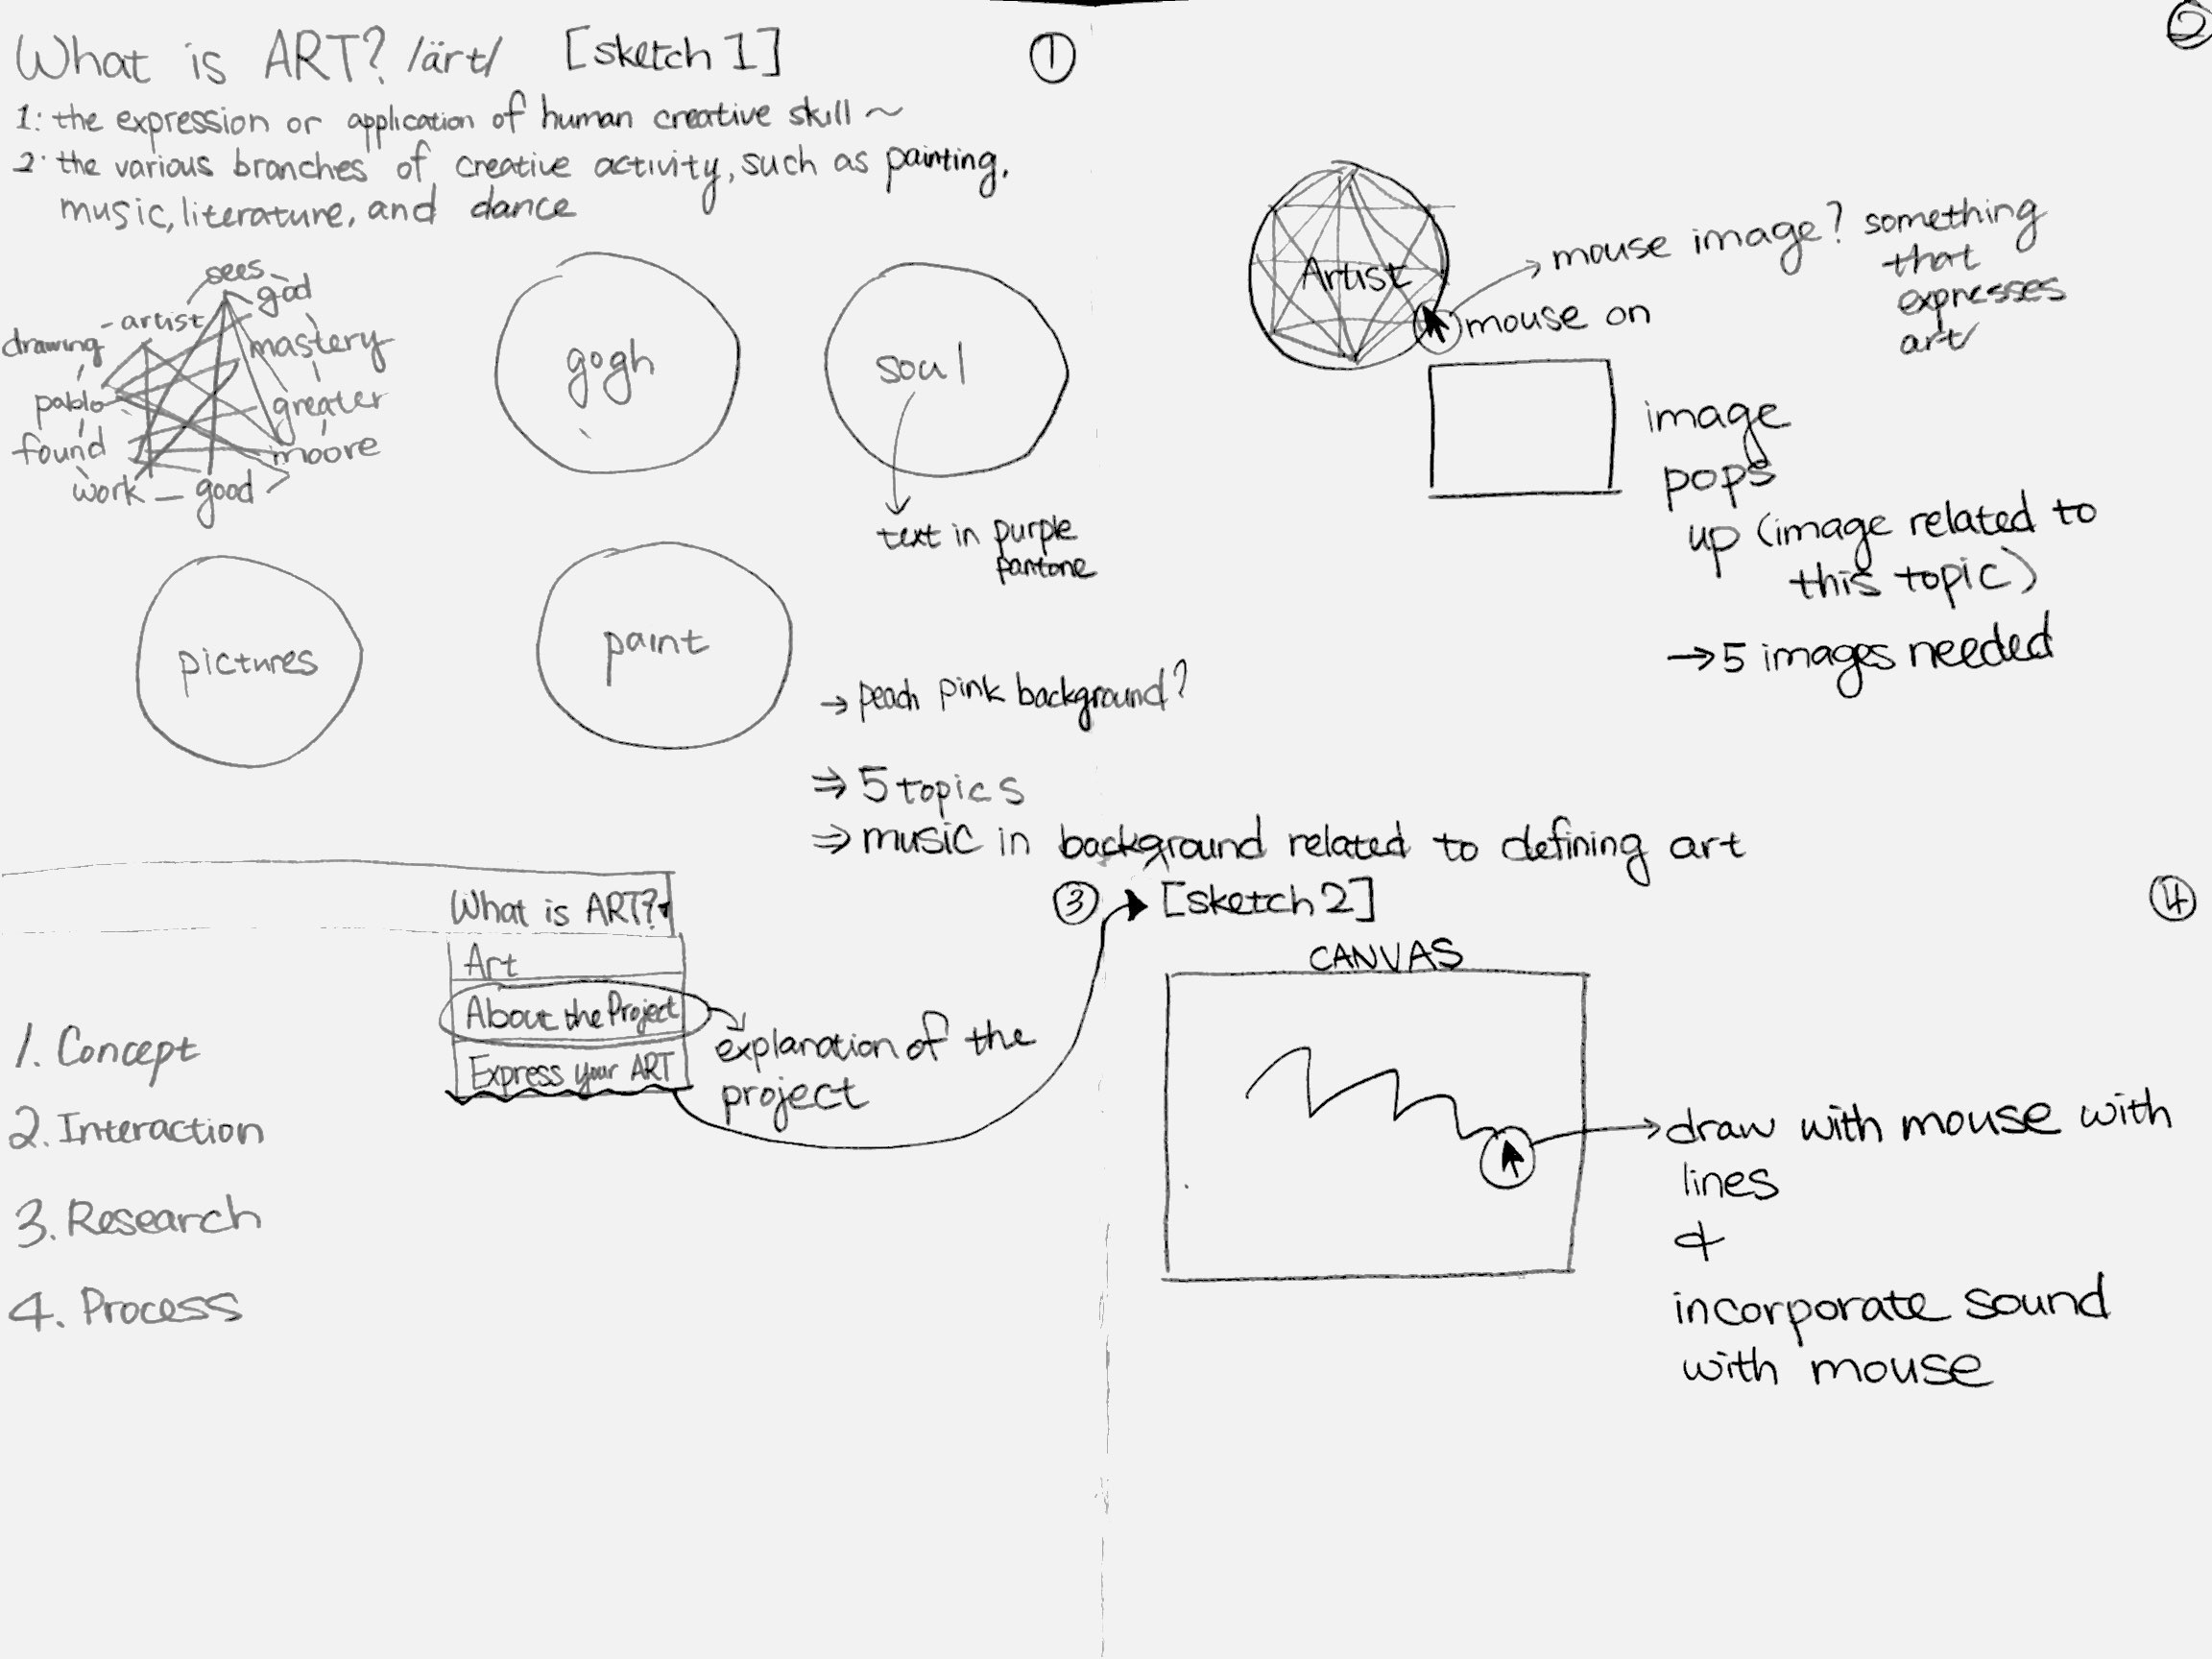 What is ART? /ärt/ [sketch 1] ①
1: the expression or application of human creative skill ~
2: the various branches of creative activity, such as painting,
music, literature, and dance
sees
god
artist
mastery
drawing
greater
pablo
moore
found
work
good
gogh
soul
text in purple
pantone
pictures
paint
→ peach pink background?
⇒ 5 topics
⇒ music in background related to defining art
②
Artist
mouse image? something
that
expresses
art
mouse on
image
pops
up (image related to
this topic)
→ 5 images needed
③
What is ART?
Art
About the Project
Express your ART
explanation of the
project
1. Concept
2. Interaction
3. Research
4. Process
[sketch 2] ④
CANVAS
draw with mouse with
lines
&
incorporate sound
with mouse